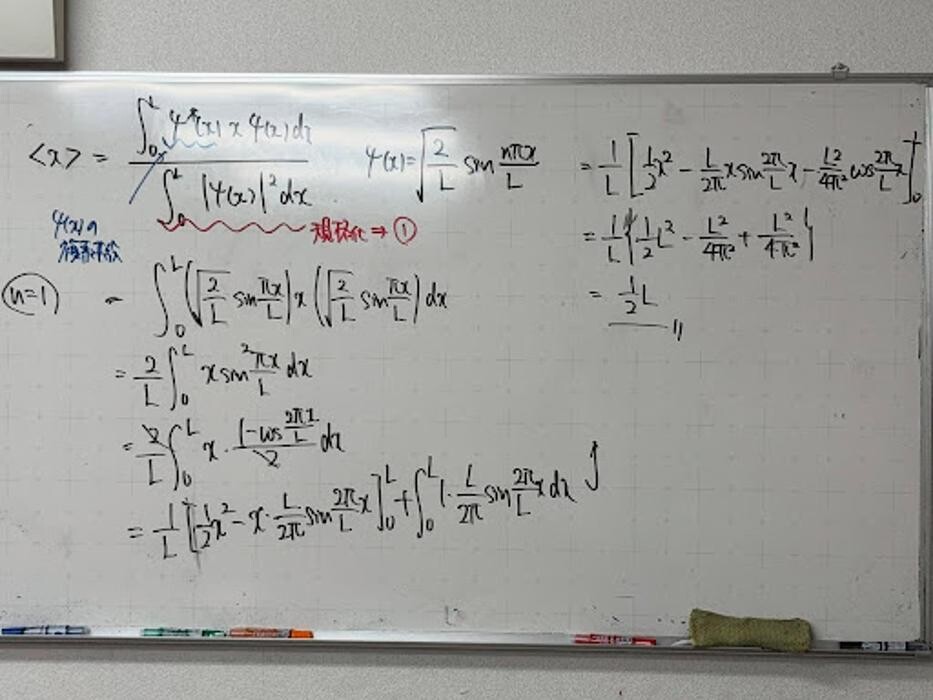 <x> = ∫₀ᴸ ψ*(x) x ψ(x) dx / ∫₀ᴸ |ψ(x)|² dx
ψ(x) = √(2/L) sin nπx/L
ψ(x)の
複素共役
規格化 ⇒ ①
n=1
= ∫₀ᴸ (√(2/L) sin πx/L) x (√(2/L) sin πx/L) dx
= 2/L ∫₀ᴸ x sin² πx/L dx
= 2/L ∫₀ᴸ x · (1-cos 2πx/L)/2 dx
= 1/L {[1/2 x² - x · L/2π sin 2π/L x]₀ᴸ + ∫₀ᴸ 1 · L/2π sin 2π/L x dx}
= 1/L [1/2 x² - L/2π x sin 2π/L x - L²/4π² cos 2π/L x]₀ᴸ
= 1/L {1/2 L² - L²/4π² + L²/4π²}
= 1/2 L